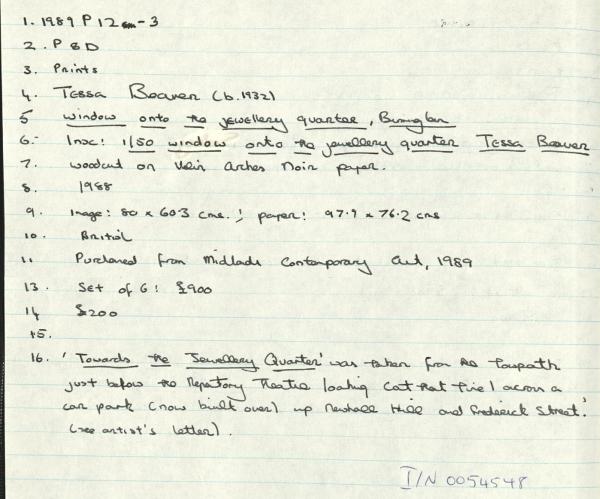 1. 1989 P12 -3
2. P & D
3. Prints
4. Tessa Beaver (b.1932)
5 window onto the jewellery quarter,
6.- Insc: 1/50 window onto the jewellery quarter Tessa Beaver
7. woodcut on Arches Noir paper.
8. 1988
9. Image: 80 x 60.3 cms.; paper: 97.9 x 76.2 cms
10. British
11 Purchased from Midlands Contemporary Art, 1989
13. Set of 6: £900
14 £200
15.
16. 'Towards the Jewellery Quarter' was taken from the towpath
just below the Repertory Theatre looking (at that time) across a
car park (now built over) up Newhall Hill and Frederick Street.'
(see artist's letter).
I/N 0054548